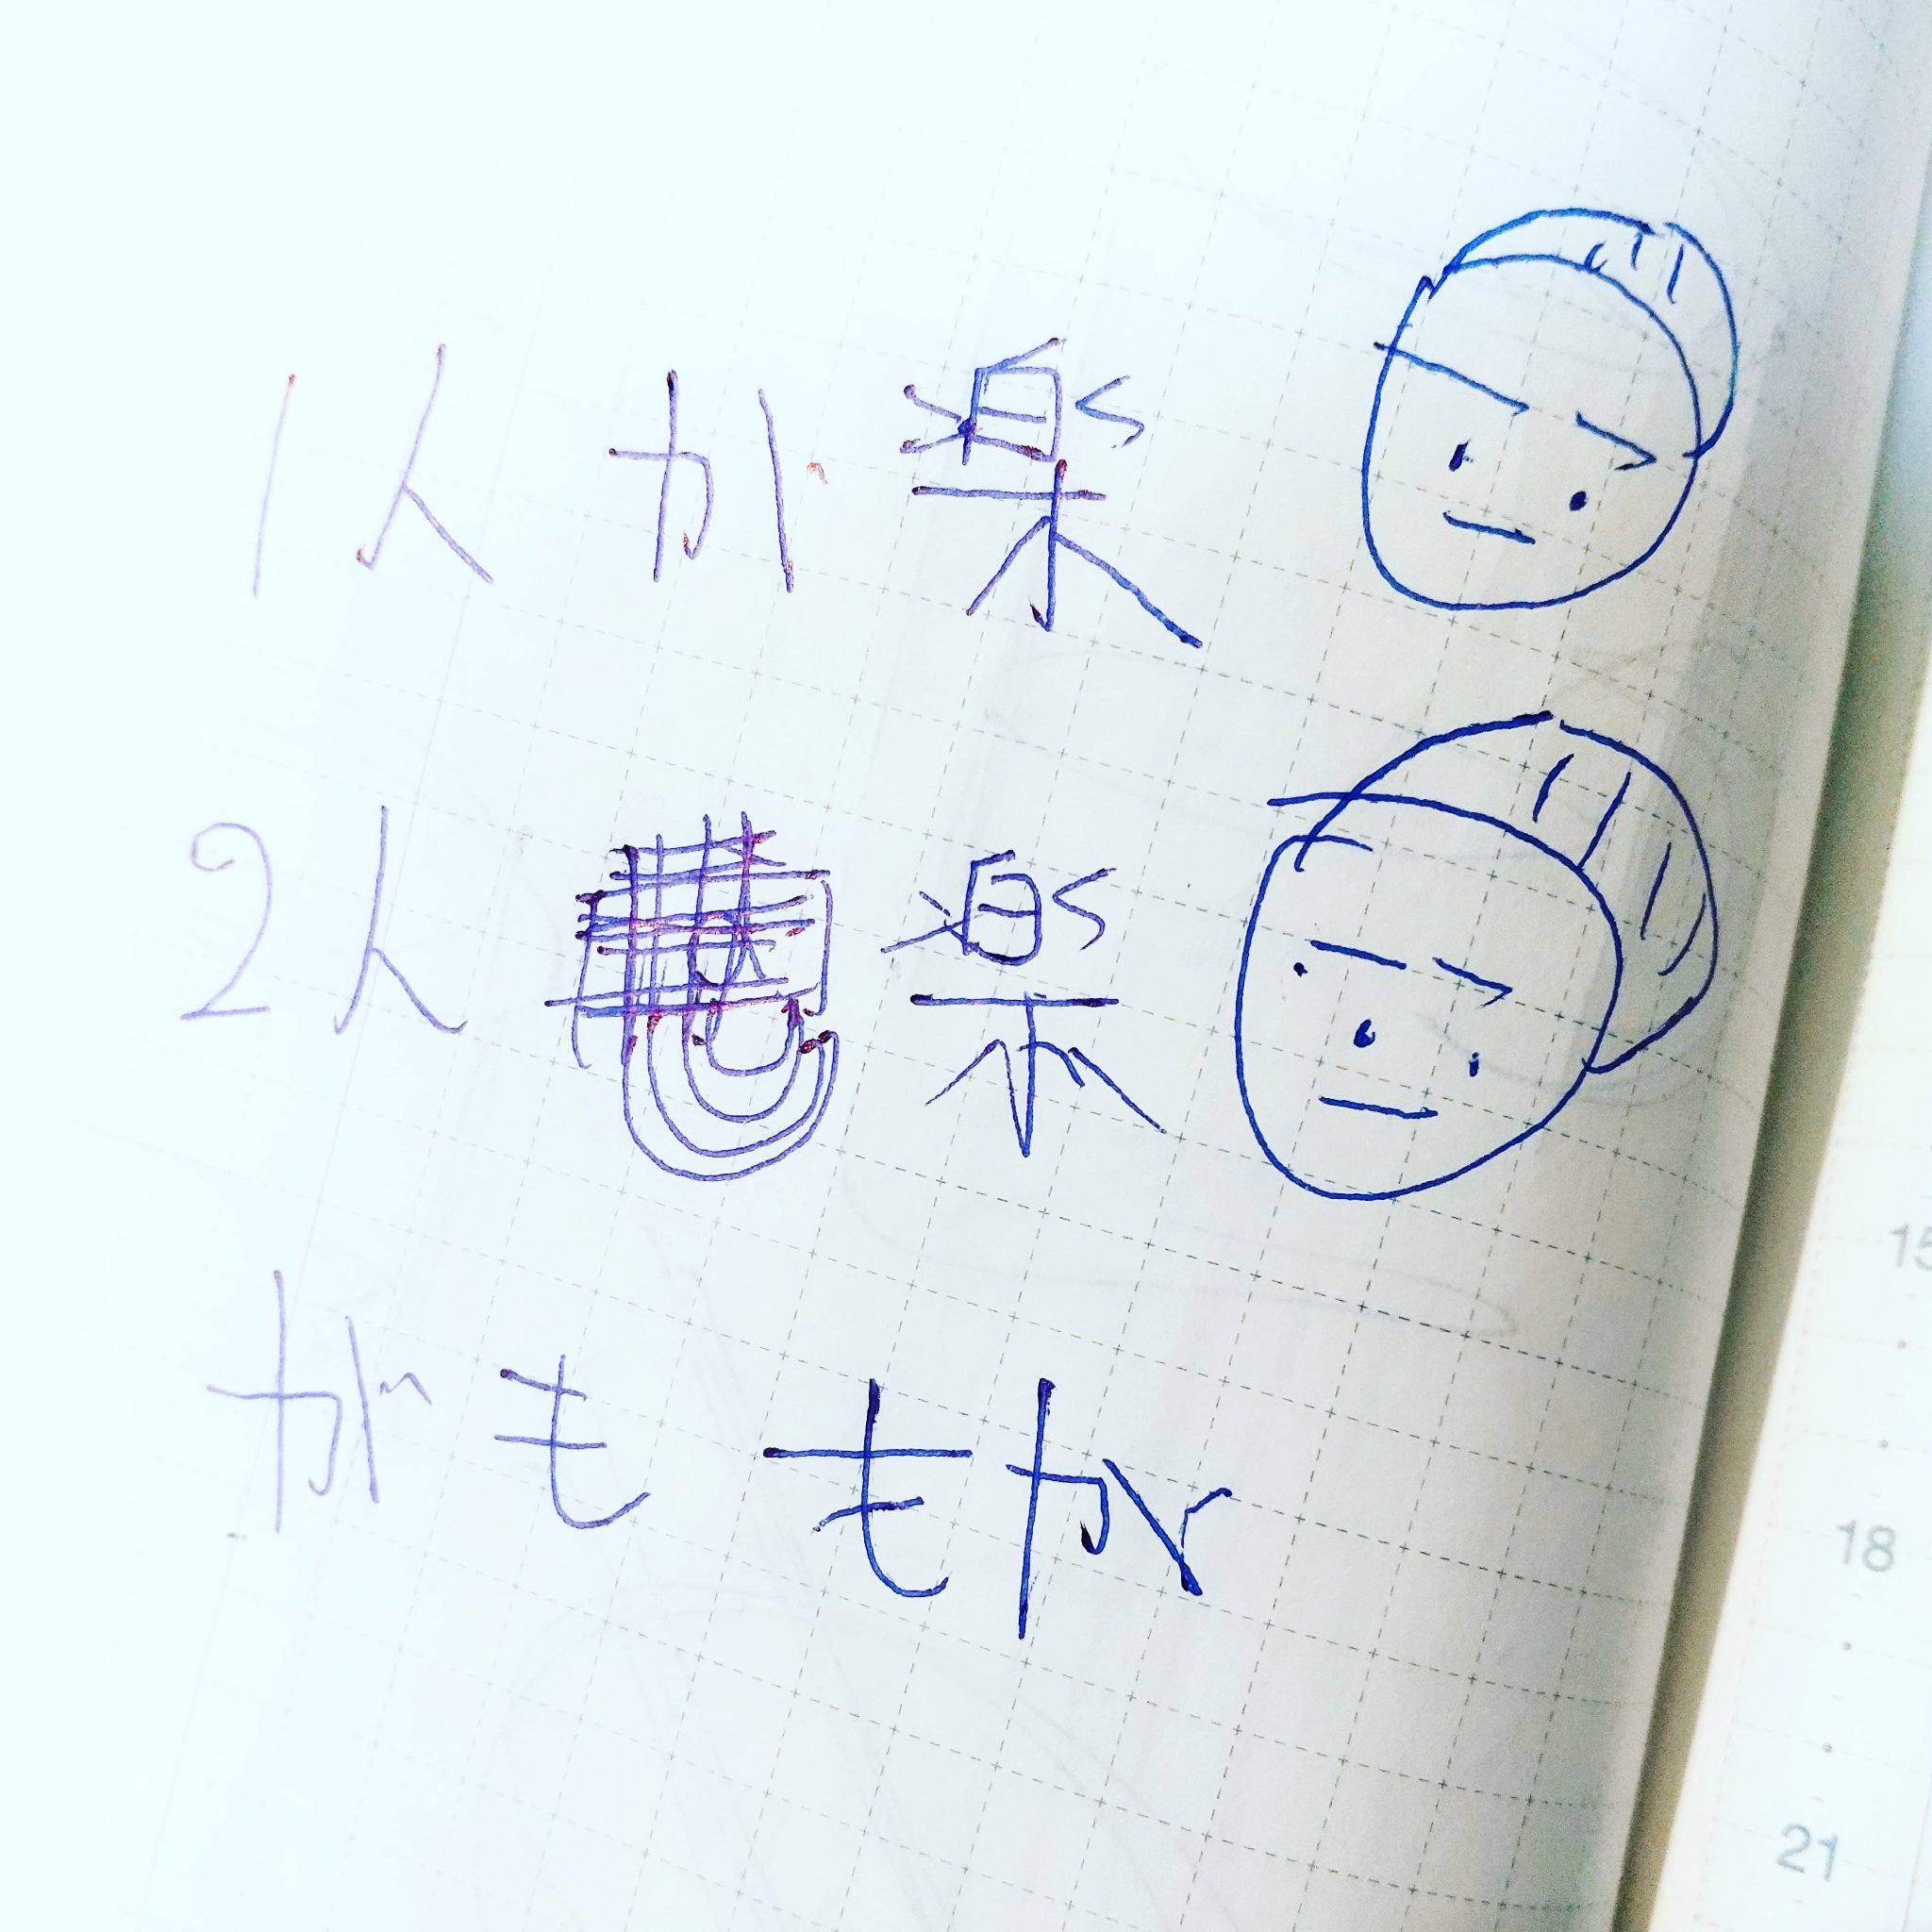 1人が楽
2人 楽
がも もが
15
18
21